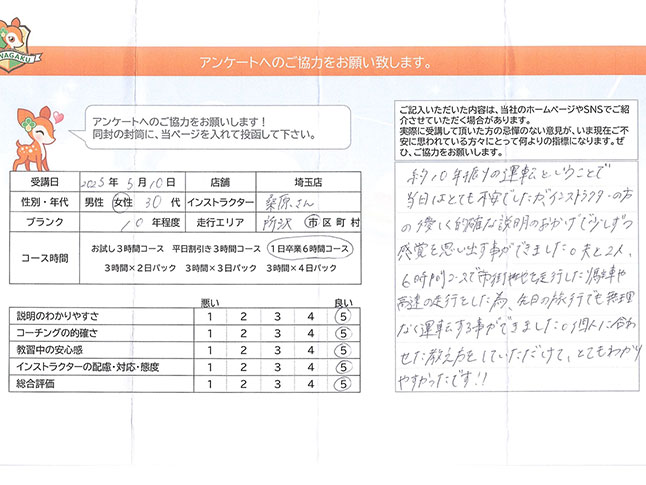 WAGAKU
アンケートへのご協力をお願い致します。
アンケートへのご協力をお願いします！
同封の封筒に、当ページを入れて投函して下さい。
ご記入いただいた内容は、当社のホームページやSNSでご紹
介させていただく場合があります。
実際に受講して頂いた方の忌憚のない意見が、いま現在ご不
安に思われている方々にとって何よりの指標になります。ぜ
ひ、ご協力をお願いします。
受講日 2025年 5月10日 店舗 埼玉店
性別・年代 男性 女性 30代 インストラクター 桑原さん
ブランク 10年程度 走行エリア 所沢 市区町村
コース時間 お試し3時間コース 平日割引き3時間コース 1日卒業6時間コース
3時間×2日パック 3時間×3日パック 3時間×4日パック
悪い 良い
説明のわかりやすさ 1 2 3 4 5
コーチングの的確さ 1 2 3 4 5
教習中の安心感 1 2 3 4 5
インストラクターの配慮・対応・態度 1 2 3 4 5
総合評価 1 2 3 4 5
約10年振りの運転ということで
当日はとても不安でしたが、インストラクターの方
の優しく的確な説明のおかげで少しずつ
感覚を思い出す事ができました。夫と2人、
6時間コースで市街地を走行した駐車や
高速の走行をした為、後日の旅行でも無理
なく運転する事ができました。個人に合わ
せた教え方をしていただけて、とてもわかり
やすかったです!!